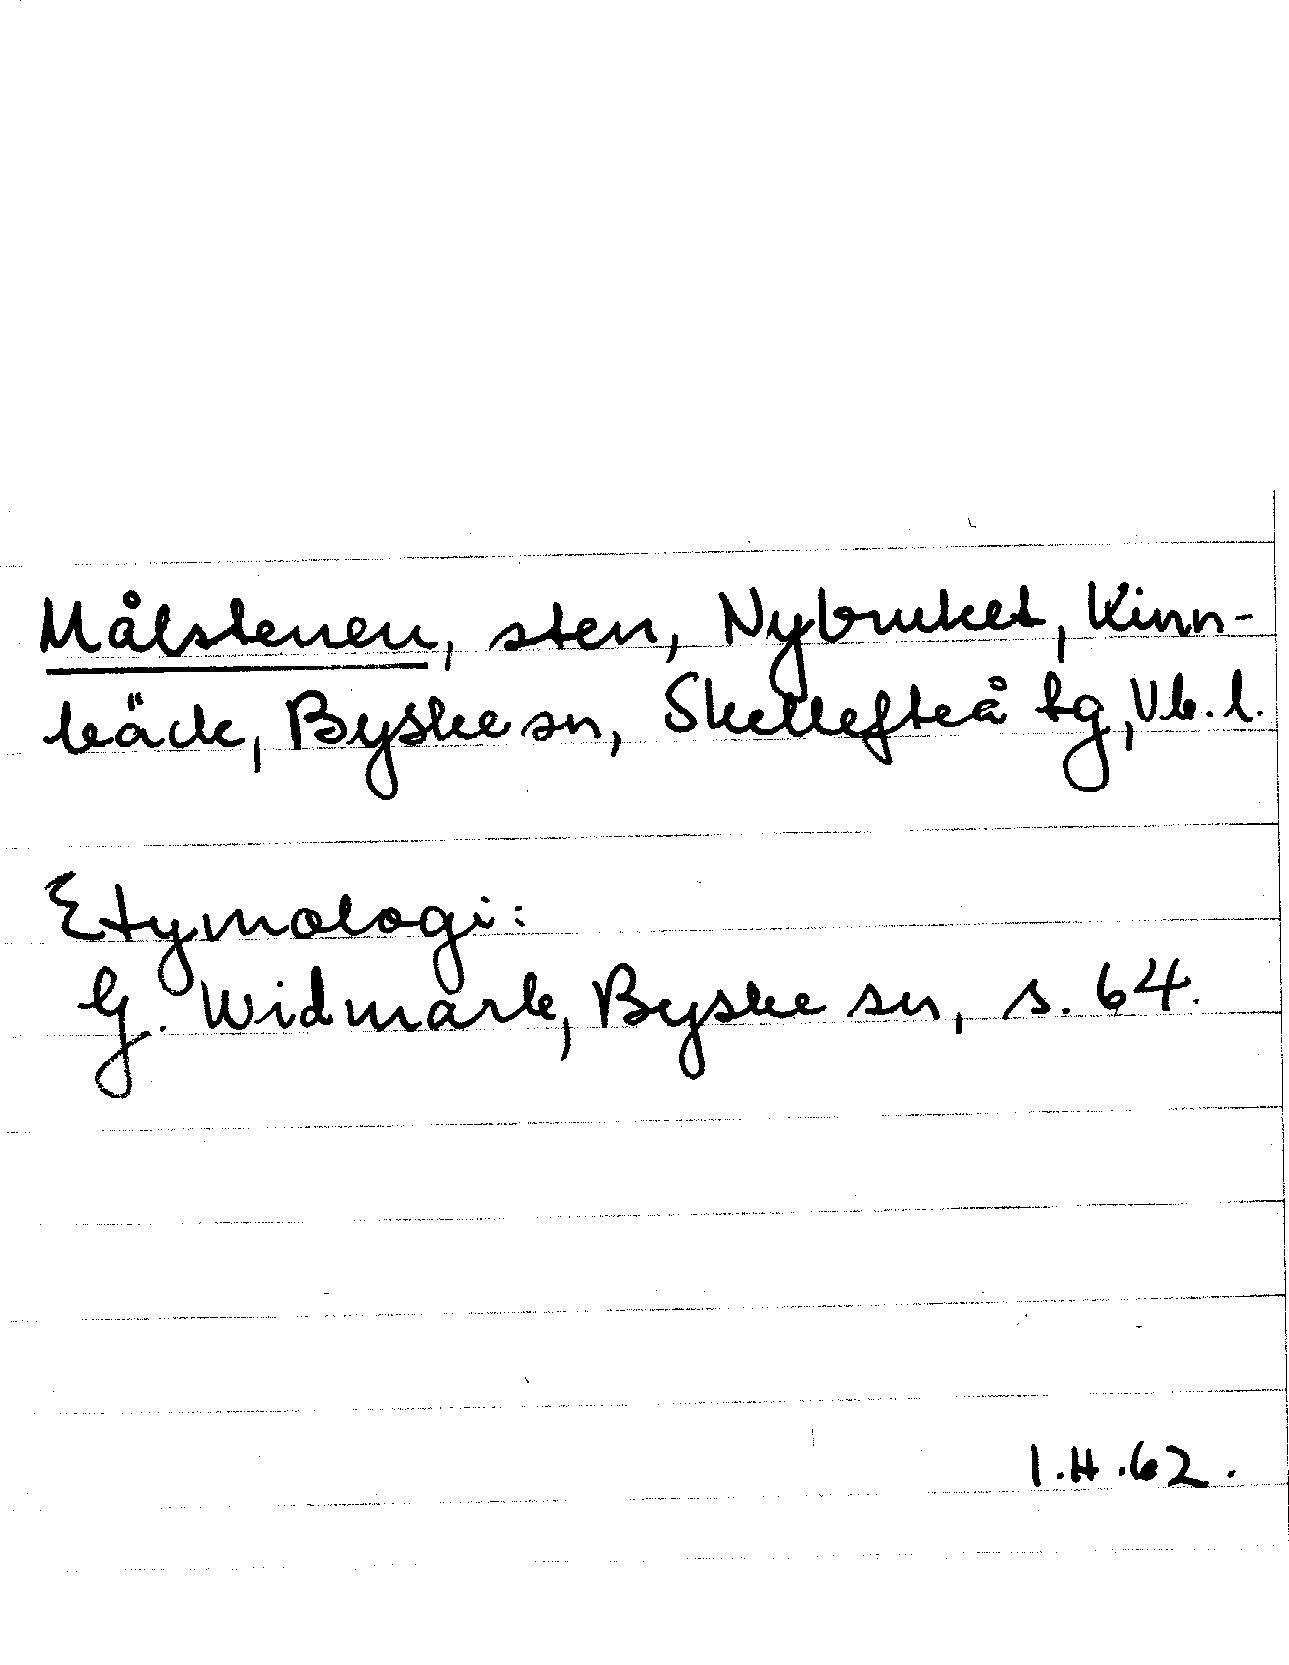 Målstenen, sten, Nybruket, Kinn-
bäck, Byske sn, Skellefteå tg, Vb. l.
Etymologi:
G. Widmark, Byske sn, s. 64.
I.H.62.